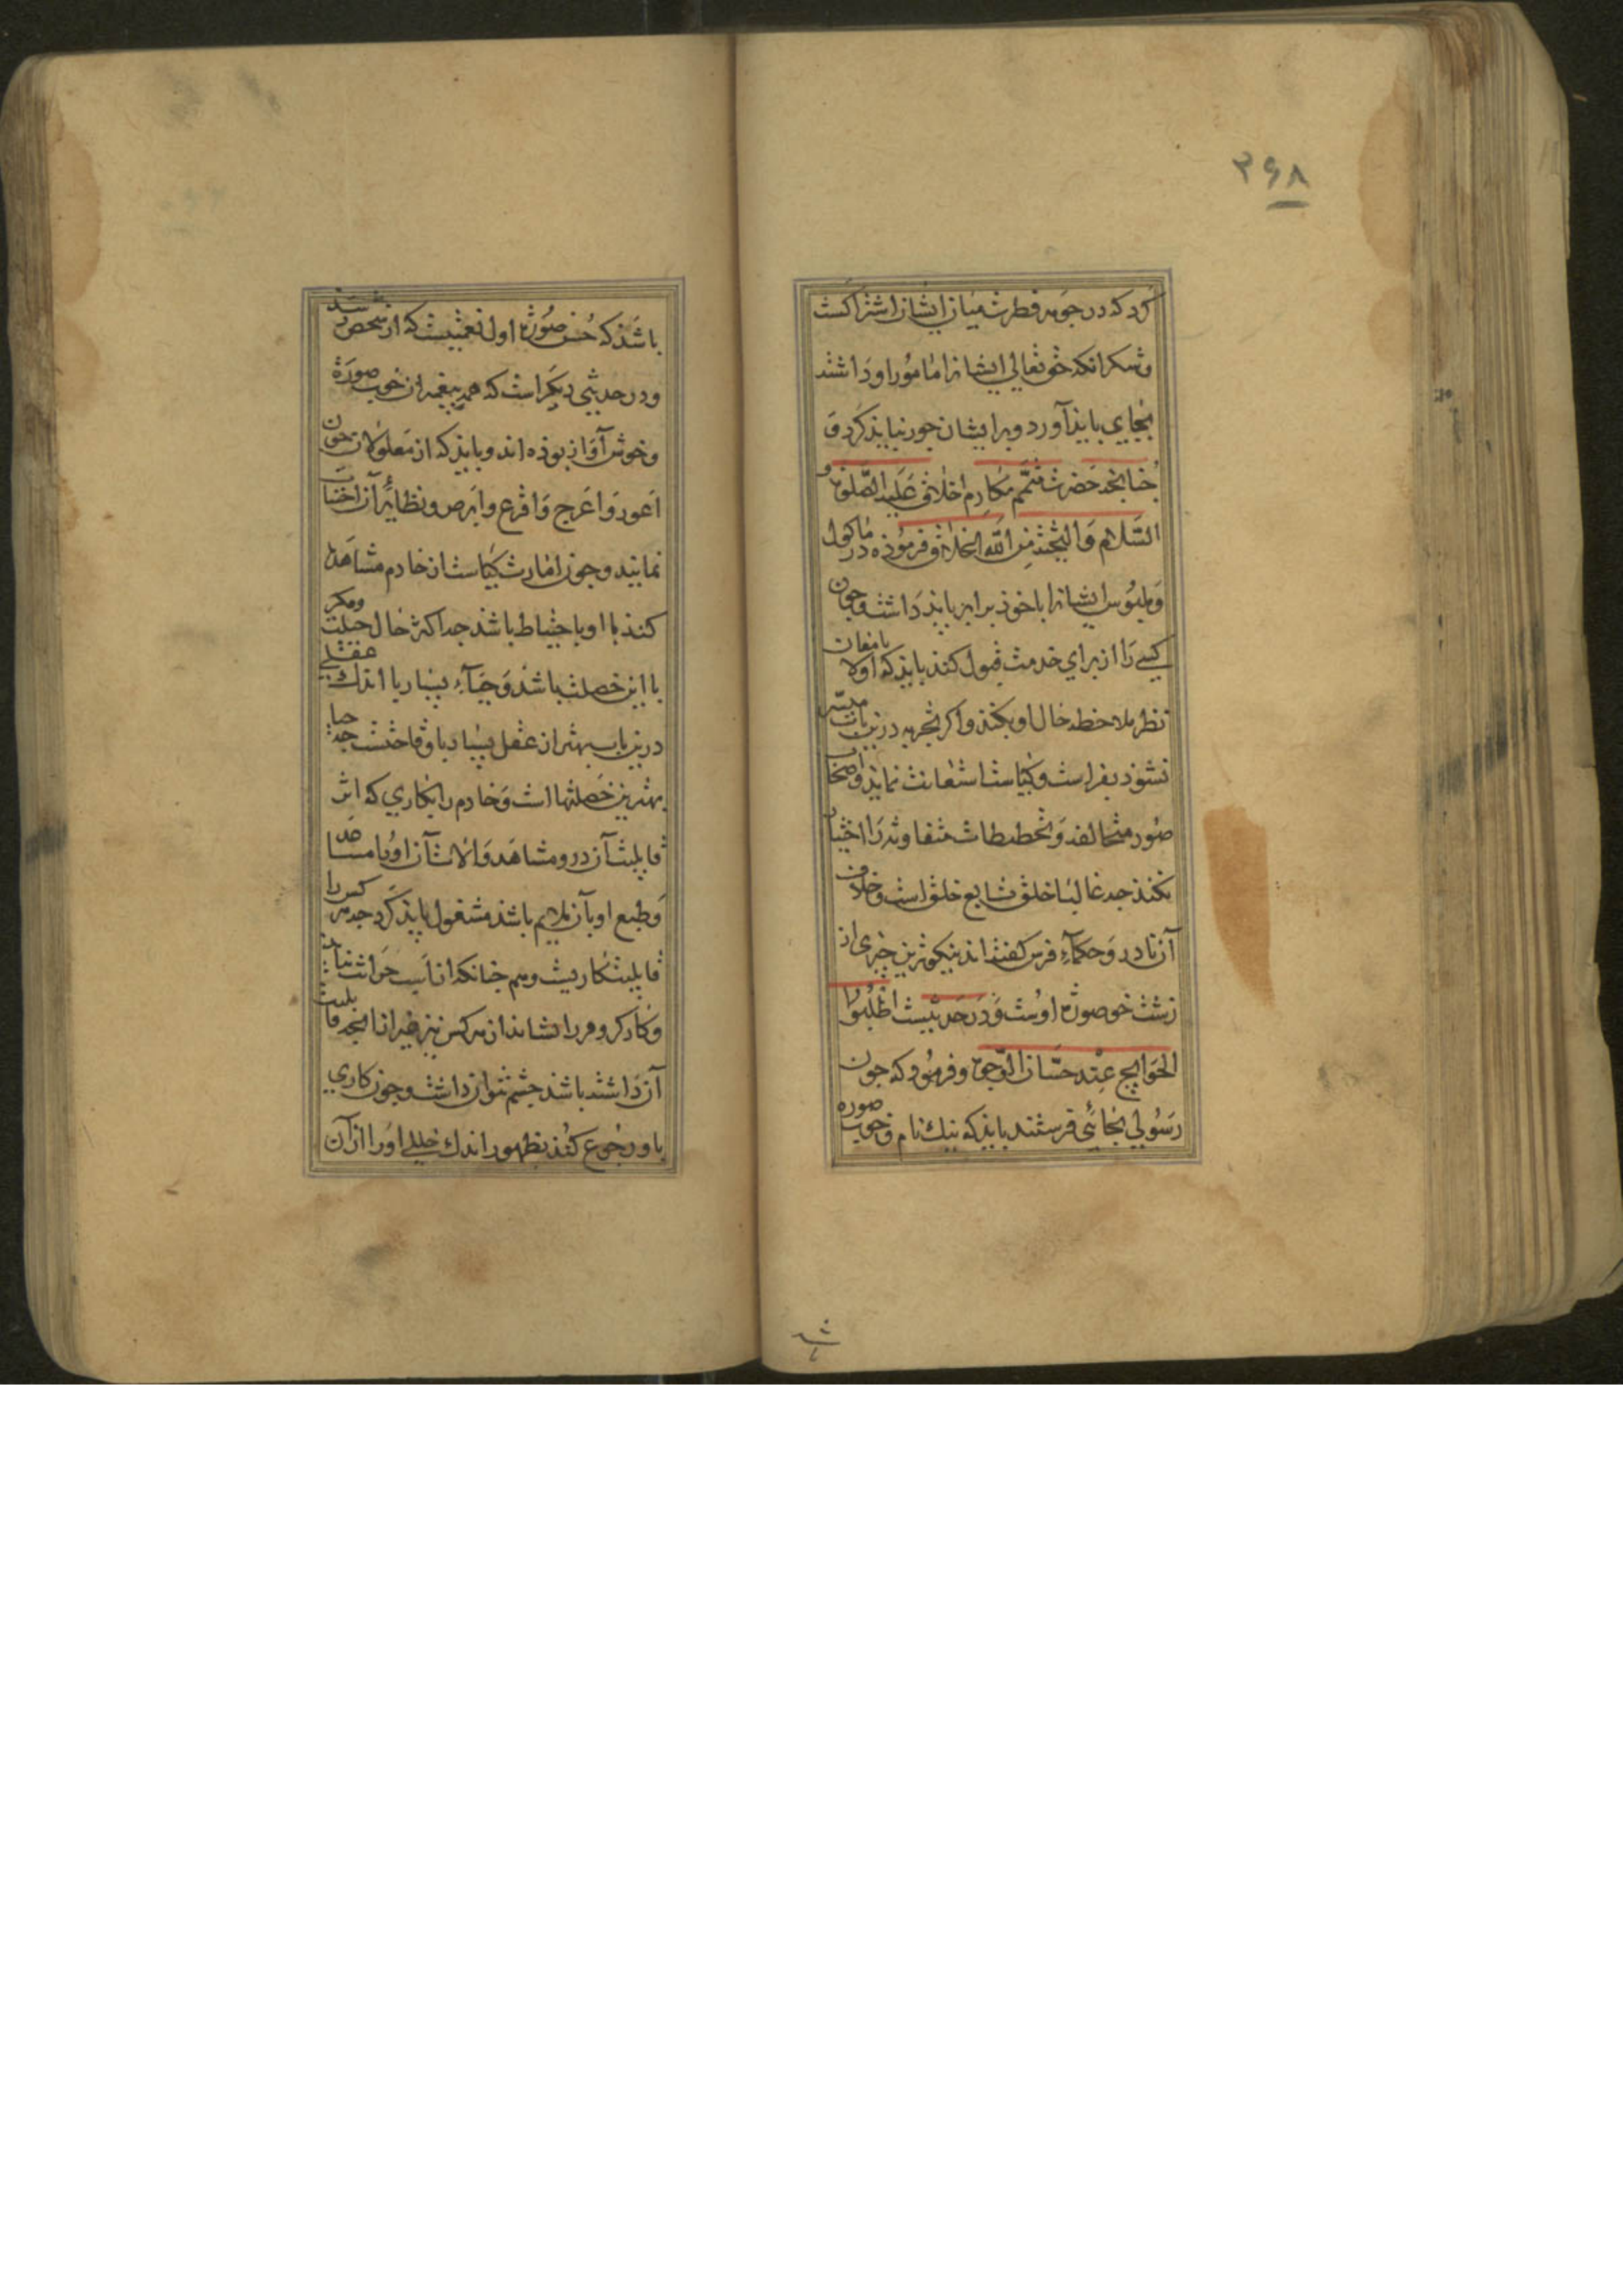 ۳۶۸
کرد که در جوهر فطرت میان ایشان اشتراکست
و شکر انکه حق تعالی ایشانرا مامور او داشته
بجای باید آورد و بر ایشان جور نباید کرد و
چنانچه حضرت متمم مکارم اخلاق علیه الصلوة و
السلام والتحیة من الله الخلاق فرموده در ماکول
و ملبوس ایشانرا با خود برابر باید داشت و چون
کسی را از برای خدمت قبول کند باید که اولا بامعان
نظر ملاحظه حال او بکند و اکر تجربه درین باب میسر
نشود بفراست و کیاست استعانت نماید و اصحاب
صور متخالفه و تخطیطات متفاوته را اختیار
نکند جه غالبا خلق تابع خلق است و خلاف
آن نادر و حکماء فرس کفته اند نیکوترین چیزی از
زشت خو صورة اوست و در حدیثست اطلبوا
الحوایج عند حسان الوجوه و فرمود که چون
رسولی بجائی فرستند باید که نیک نام و خوب صوره
باشد که حسن صورة اول نعمتیست که از شخص رسد
و در حدیثی دیکر است که همه پیغمبران خوب صورة
و خوش آواز بوده اند و باید که از معلولان چون
اعور و اعرج و اقرع و ابرص و نظایر آن اجتناب
نمایند و چون امارت کیاست از خادم مشاهده
کند با او باحتیاط باشد جه اکثر حال حیلت و مکر
با این خصلت باشد و حیاء بسیار با اندک عقلی
درین باب بهتر از عقل بسیار با وقاحتست جه حیا
بهترین خصلتها است و خادم را بکاری که اثر
قابلیت آن درو مشاهد و آلات آن او را مساعد
و طبع او بآن ملایم باشد مشغول باید کرد جه هر کس را
قابلیت کاریست و هم چنانکه از اسب حراثت نیاید
و کاو کر و فر را نشاید از هر کس نیز غیر از انچه قابلیت
آن داشته باشد چشم نتوان داشت و چون کاری
باو رجوع کند بظهور اندک خللی او را از آن